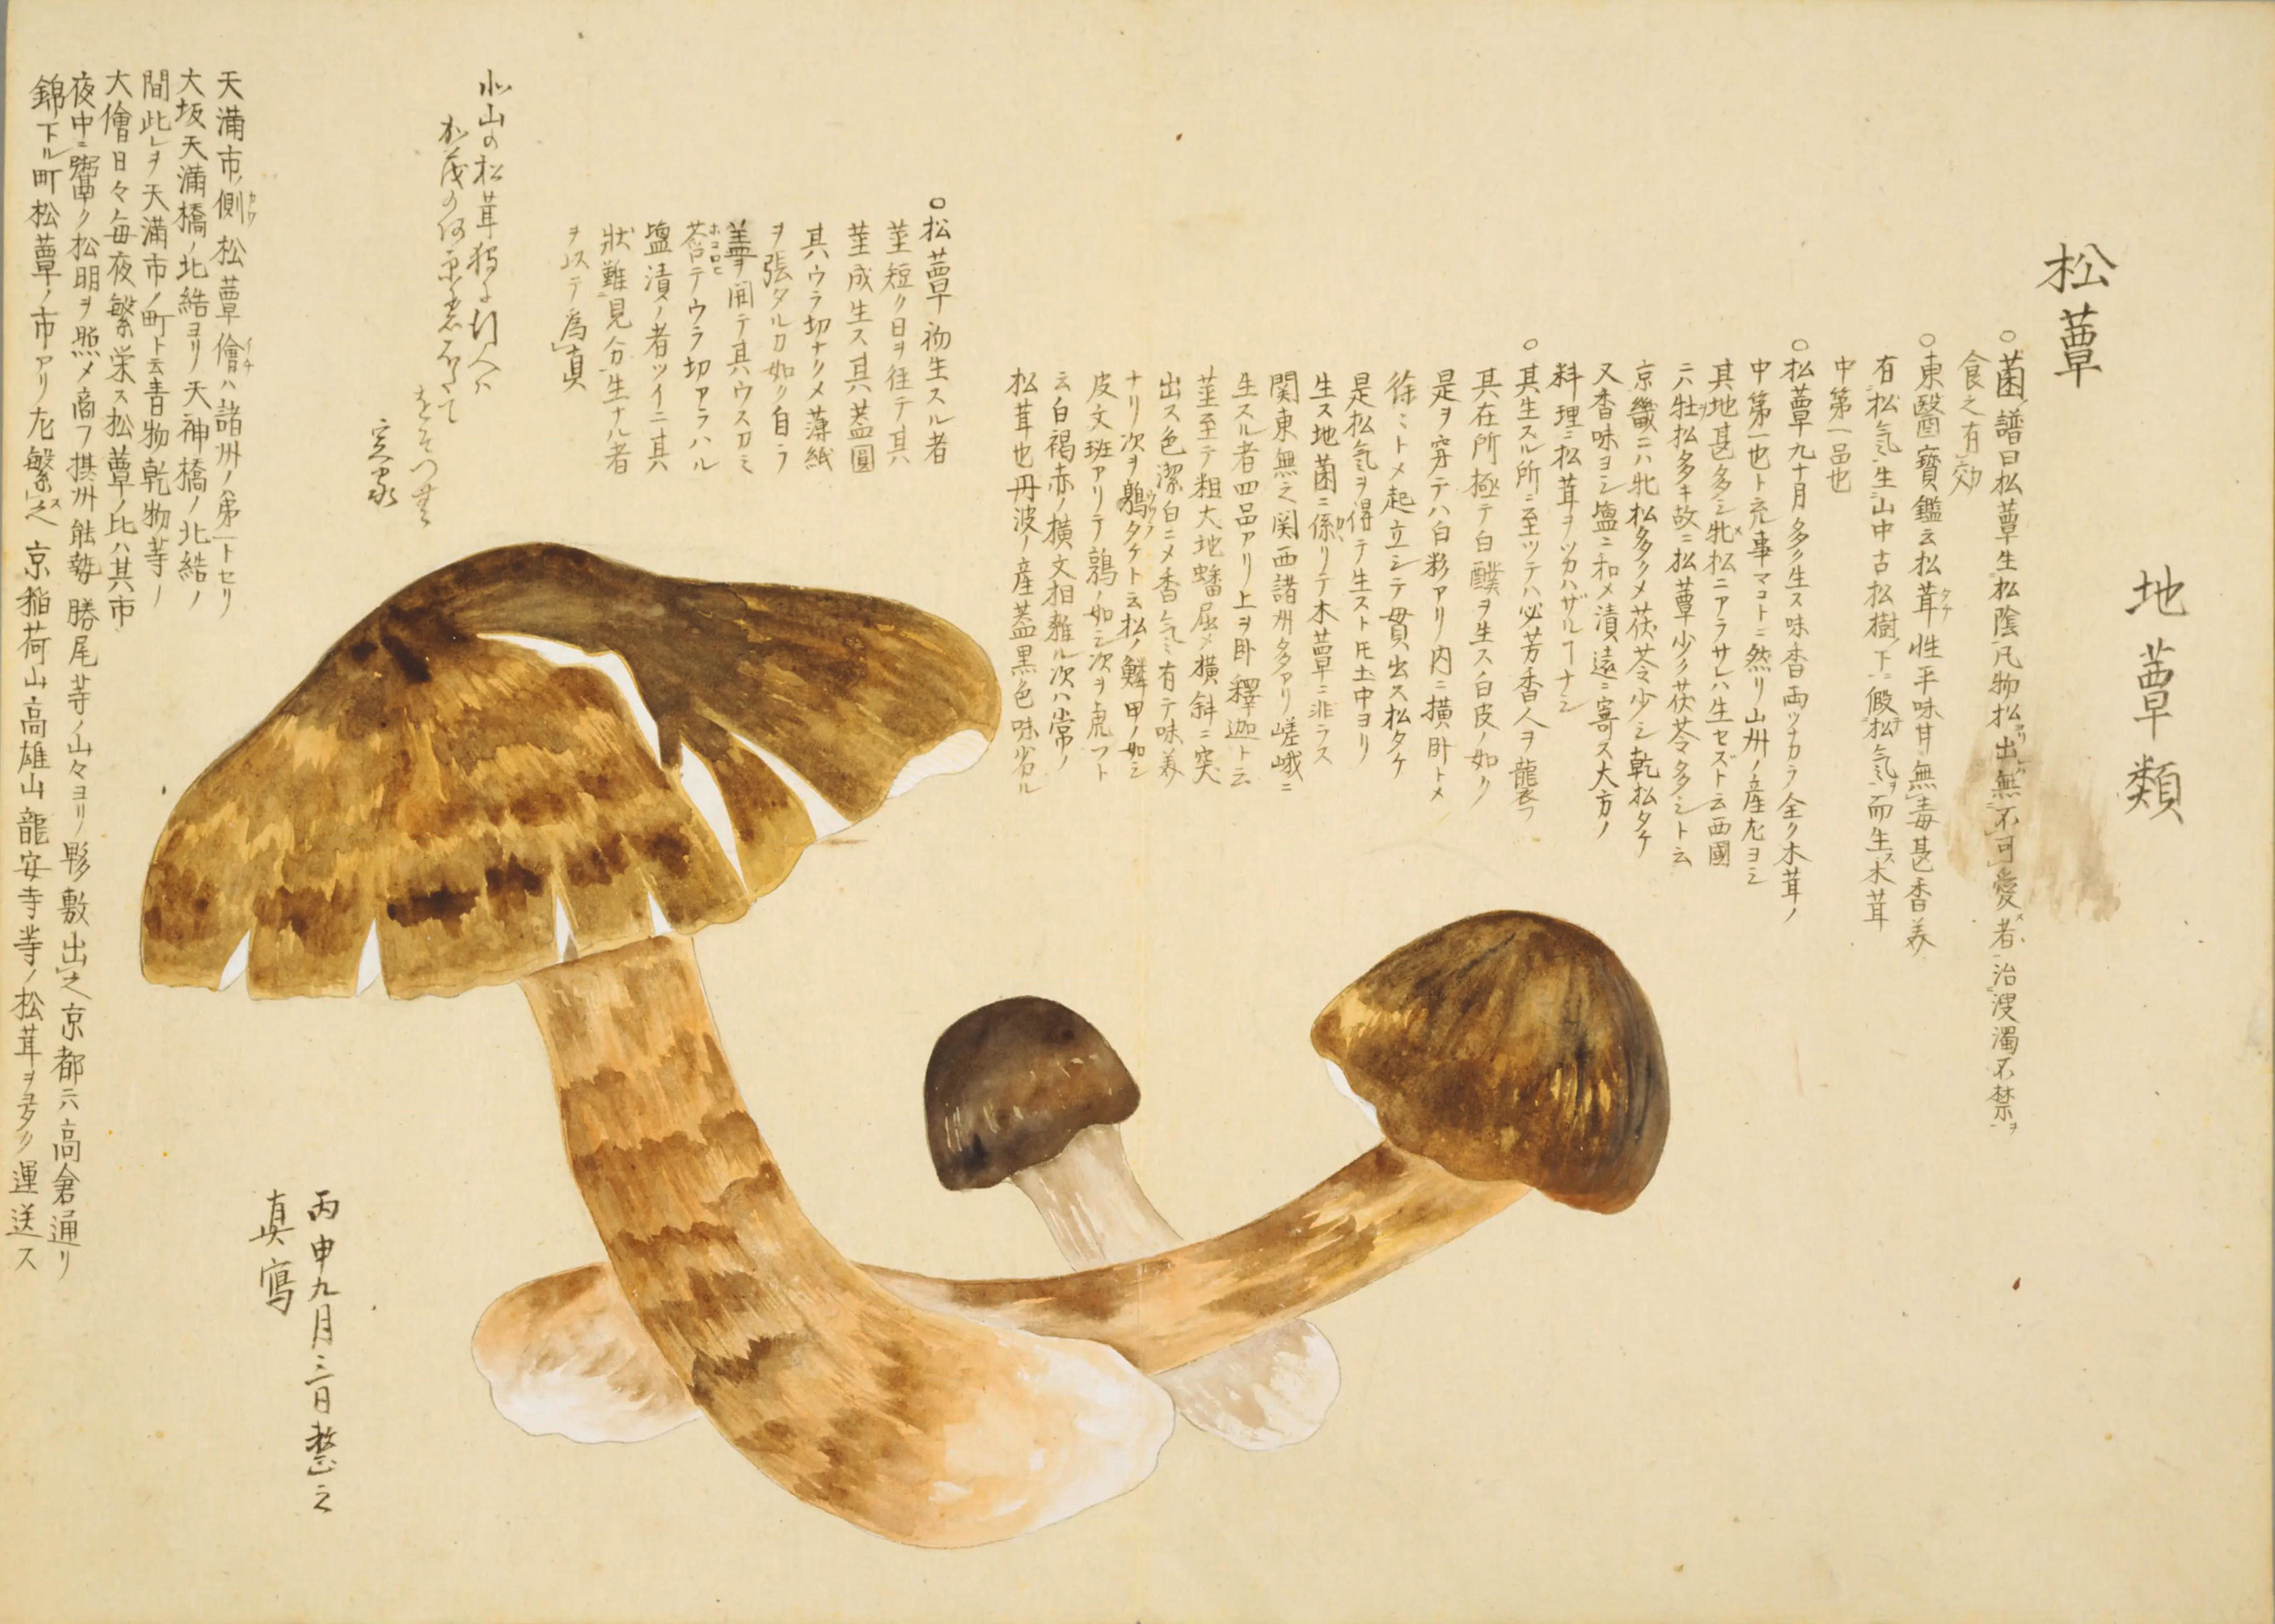 地蕈類
松蕈
○菌譜曰松蕈生松陰凡物松出無不可愛者治溲濁不禁ヲ
食之有効
○東醫寶鑑云松茸タケ性平味甘無毒甚香美
有松気生山中古松樹下假松気而生木茸
中第一品也
○松蕈九十月多ク生ス味香両ツナカラ全ク木茸ノ
中第一也ト充事マコトニ然リ山州ノ産尤ヨシ
其地甚多シ牝松ニアラサレハ生セズト云西國
ニハ牡松多キ故ニ松蕈少ク茯苓多シト云
京畿ニハ牝松多クメ茯苓少シ乾松タケ
又香味ヨシ塩ニ和メ漬遠ニ寄ス大方ノ
料理ニ松茸ヲツカハザルヿナシ
○其生スル所ニ至ツテハ必芳香人ヲ襲フ
其在所極テ白醭ヲ生ス白皮ノ如ク
是ヲ穿テハ白粉アリ内ニ横卧トメ
徐ミトメ起立シテ貫出ス松タケ
是松気ヲ得テ生ストモ土中ヨリ
生ス地菌ニ係リテ木蕈ニ非ラス
関東無之関西諸州多アリ嵯峨ニ
生スル者四品アリ上ヲ卧釋迦ト云
莖至テ粗大地蟠屈メ横斜ニ突
出ス色潔白ニメ香気有テ味美
ナリ次ヲ鶉タケト云松ノ鱗甲ノ如シ
皮文班アリテ鶉ノ如シ次ヲ虎フト
云白褐赤ノ横文相雜ル次ハ常ノ
松茸也丹波ノ産蓋黒色味劣ル
○松蕈初生スル者
莖短ク日ヲ往テ其
莖成生ス其蓋圓
其ウラ切ナクメ薄紙
ヲ張タルカ如ク自ラ
開テ其ウスカミ
テウラ切アラハル
塩漬ノ者ツイニ其
狀難見分生ナル者
ヲ以テ為真
山の松茸
天満市ノ側カワ松蕈儈イチハ諸州ノ第一トセリ
大坂天満橋ノ北結ヨリ天神橋ノ北結ノ
間此ヲ天満市ノ町ト云青物乾物等ノ
大儈日々毎夜繁栄ス松蕈ノ比ハ其市
夜中ニ鬻ク松明ヲ照メ商フ摂州能勢勝尾寺ノ山々ヨリ夥敷出之京都ニハ高倉通リ
錦下ル町松蕈ノ市アリ尤繁之京稲荷山高雄山龍安寺等ノ松茸ヲ多ク運送ス
丙申九月三日整之
真寫